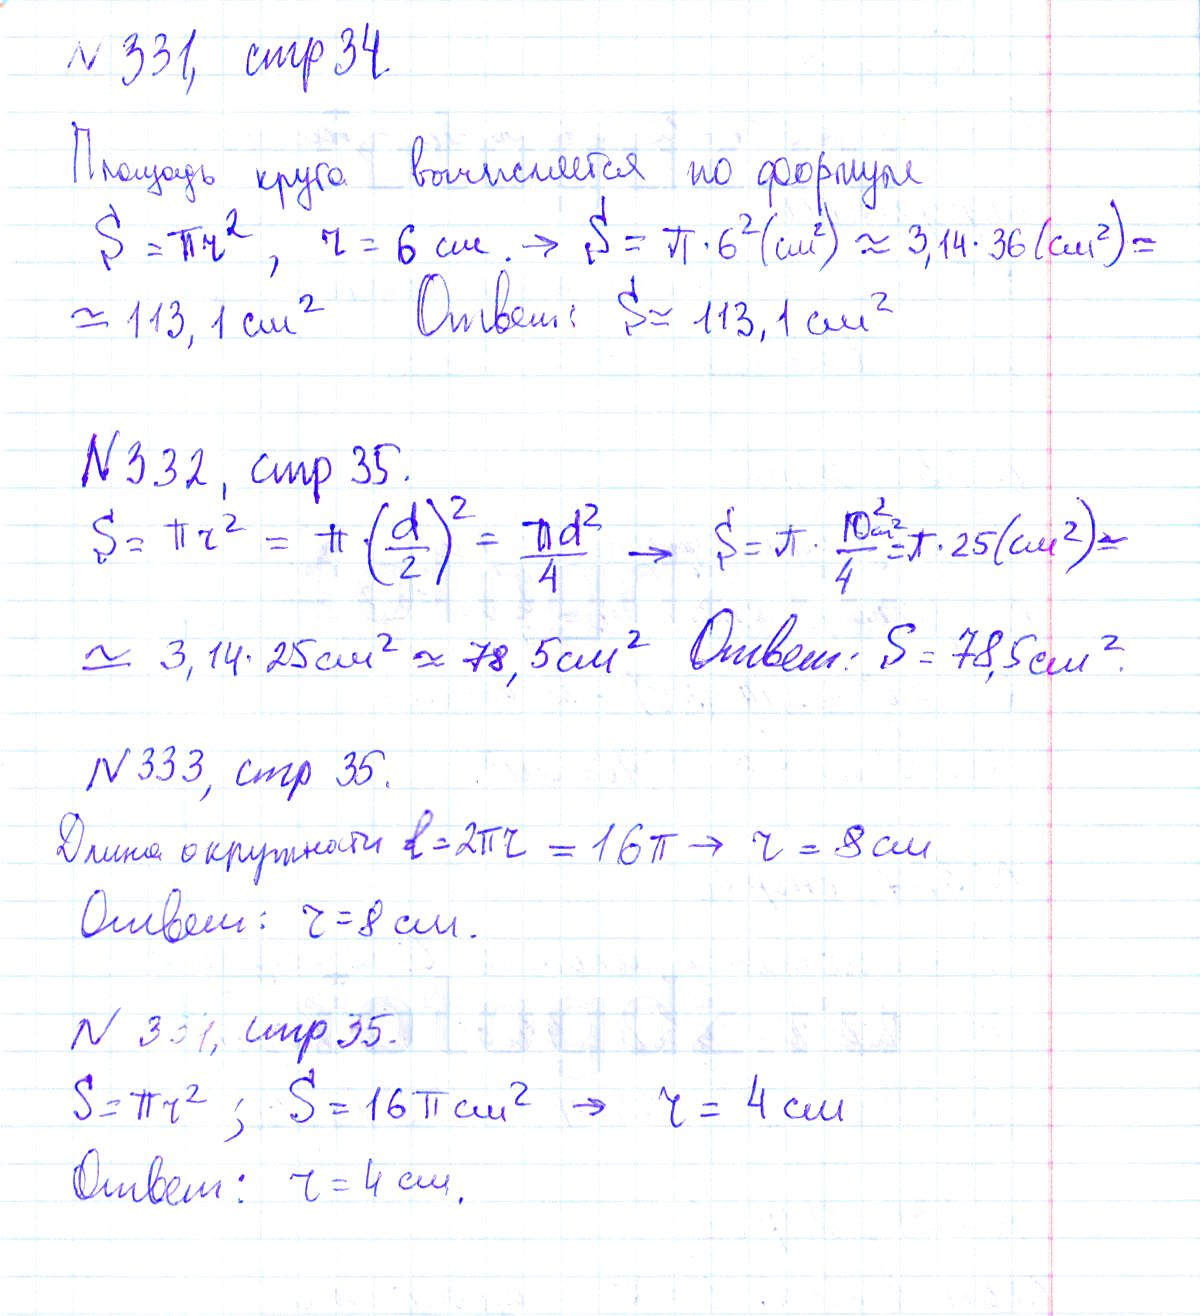 N 331, стр 34.
Площадь круга вычисляется по формуле
S = πr², r = 6 см. → S = π·6²(см²) ≈ 3,14·36(см²) ≃
≃ 113,1 см² Ответ: S ≃ 113,1 см²
N 332, стр 35.
S = πr² = π·(d/2)² = πd²/4 → S = π·10²см²/4 = π·25(см²) ≃
≃ 3,14·25см² ≈ 78,5см² Ответ: S = 78,5см².
N 333, стр 35.
Длина окружности l = 2πr = 16π → r = 8 см
Ответ: r = 8 см.
N 331, стр 35.
S = πr²; S = 16π см² → r = 4 см
Ответ: r = 4 см.